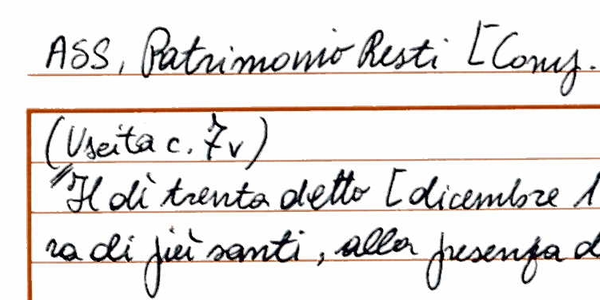 ASS, Patrimonio Resti [Conv.
(Uscita c. 7v)
"Il dì trenta detto [dicembre 1
ra di più santi, alla presenza d